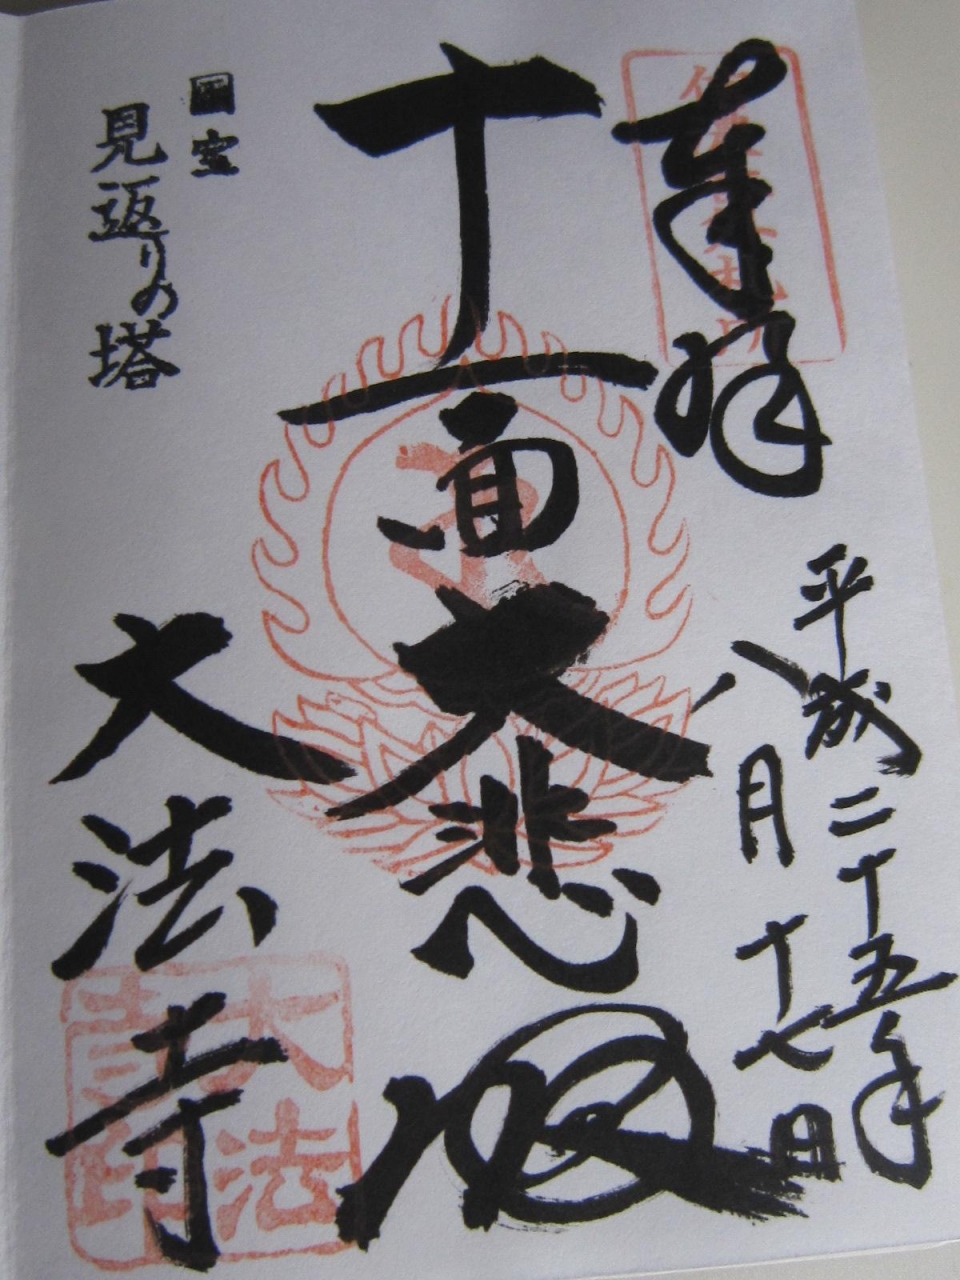 奉拝
平成二十五年
八月十七日
十一面大悲殿
国宝
見返りの塔
大法寺
大法
寺印